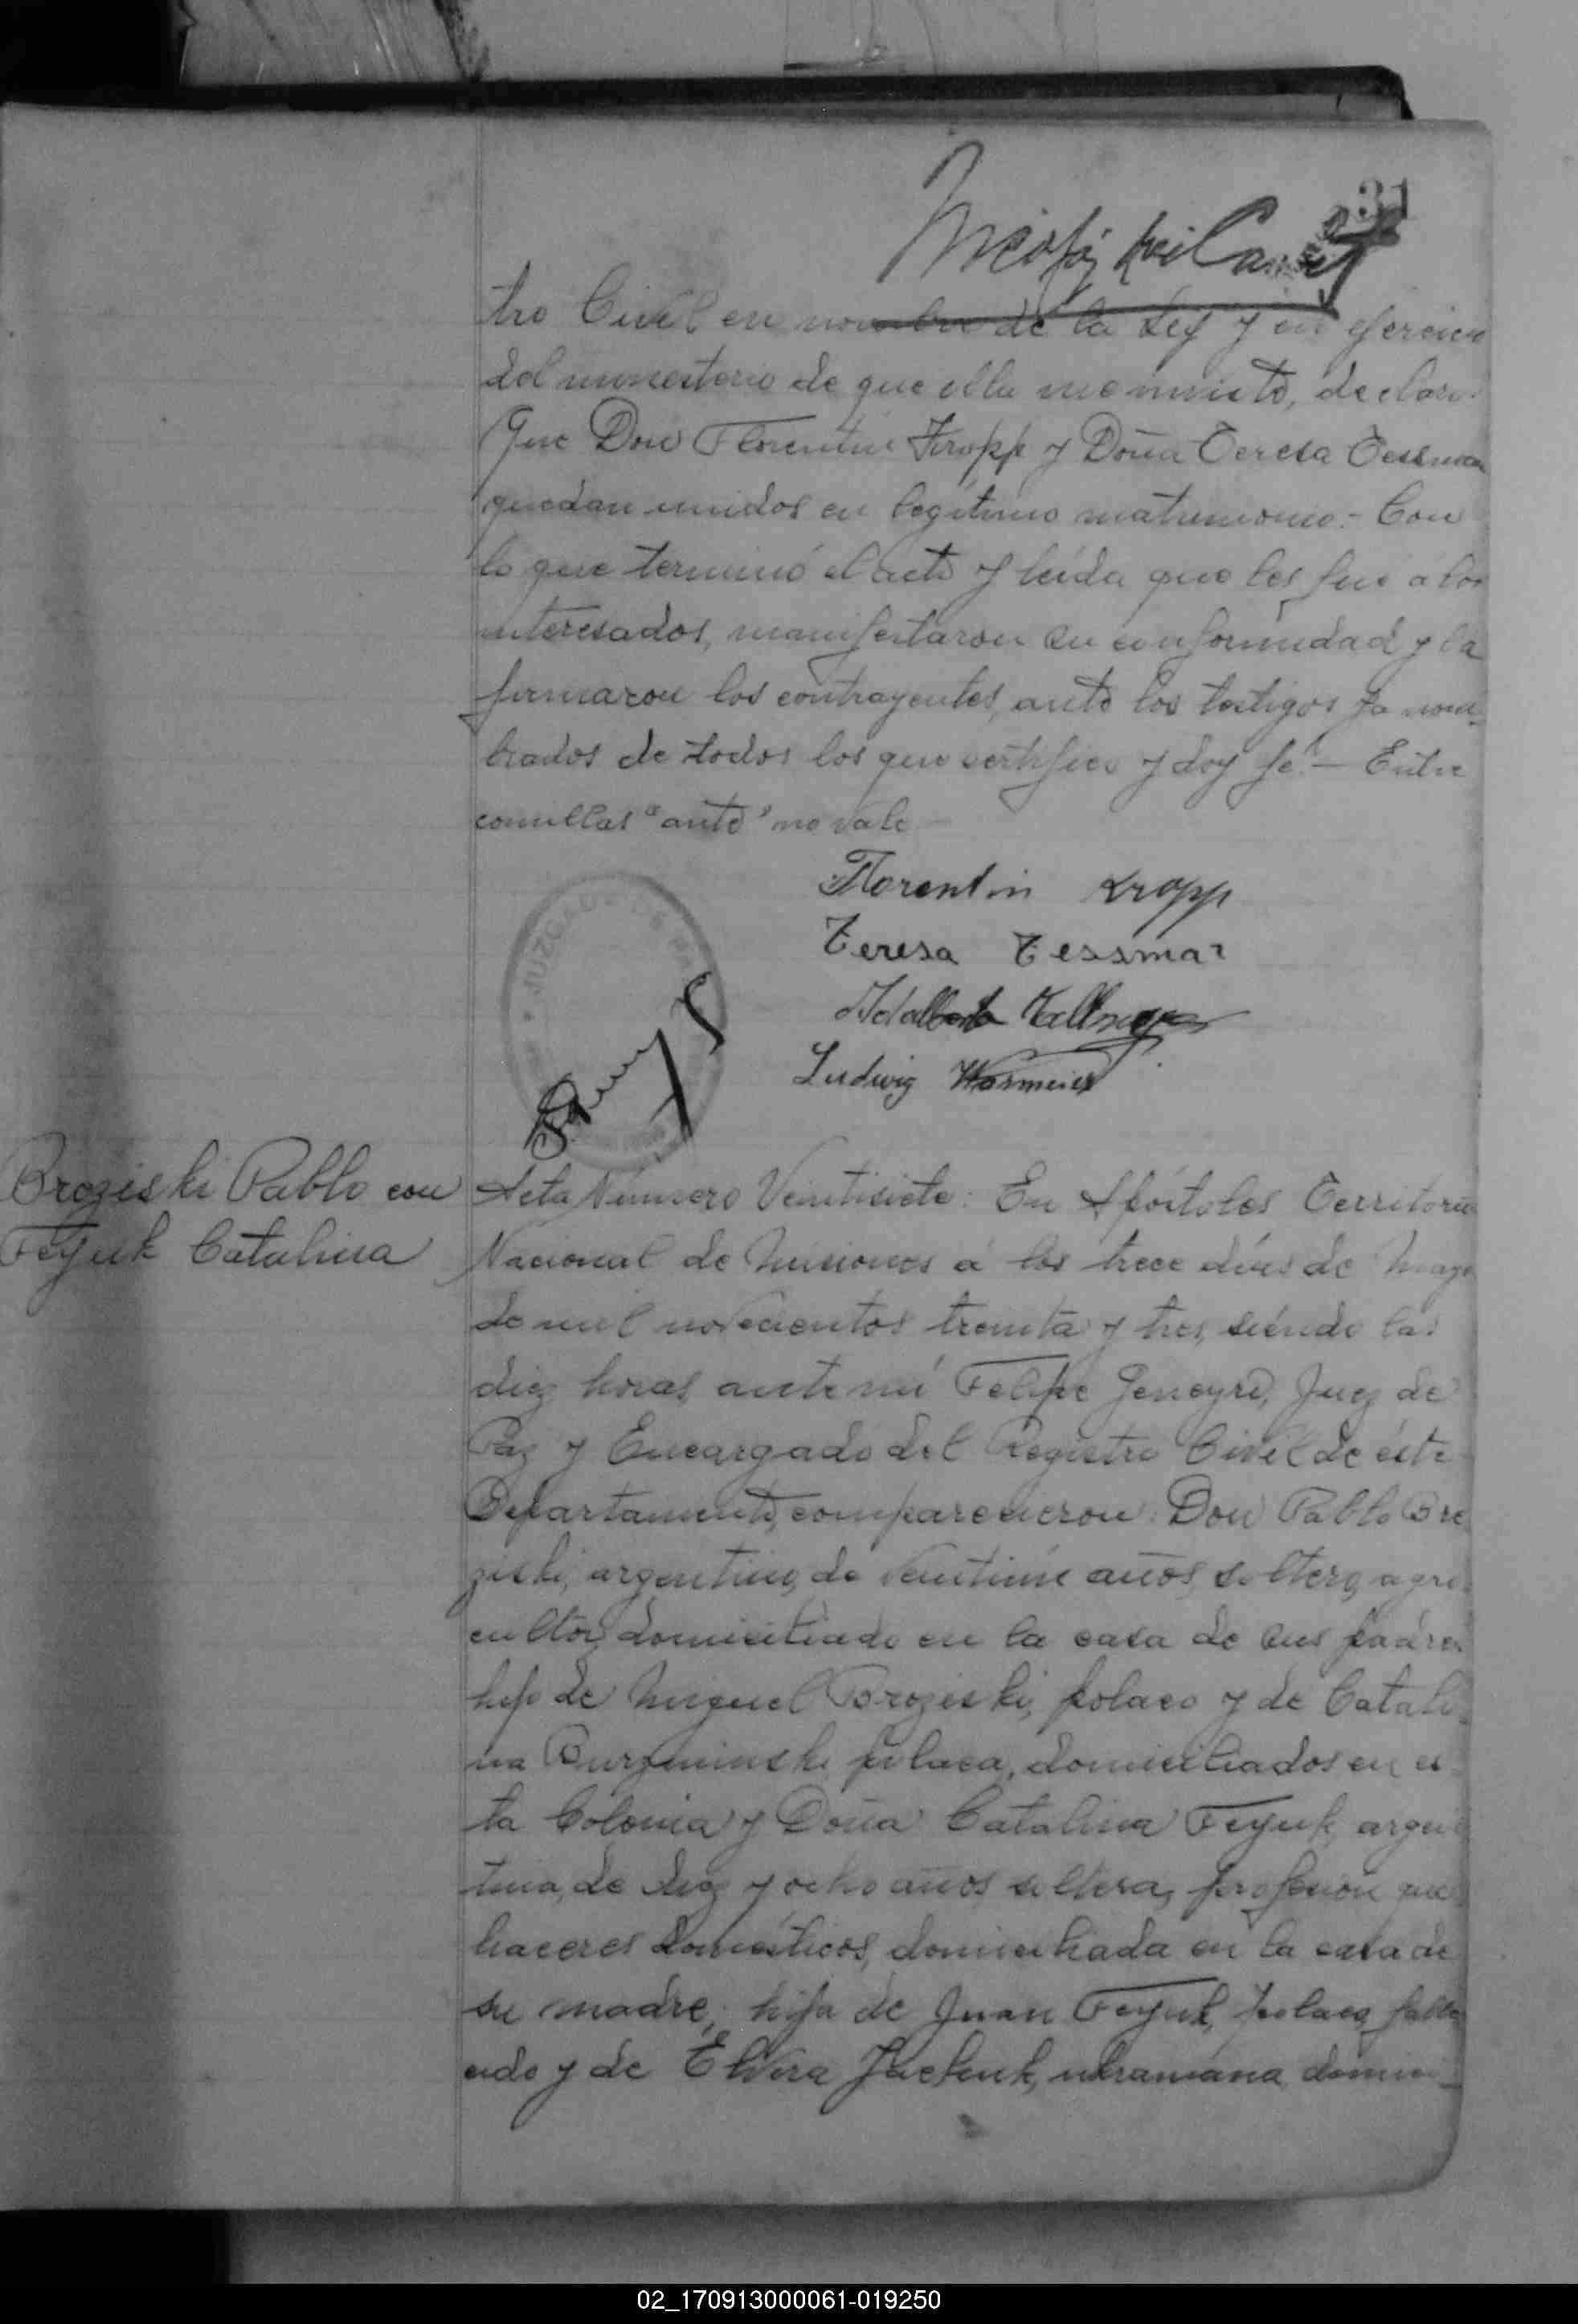 31
tro Civil en nombre de la Ley y en ejercicio
del ministerio de que ella me inviste, declaro:
Que Don Florentin Kropp y Doña Teresa Tessmar
quedan unidos en legítimo matrimonio.- Con
lo que terminó el acto y leída que les fué á los
interesados, manifestaron su conformidad y la
firmaron los contrayentes, ante los testigos ya nom-
brados de todos los que certifico y doy fé.- Entre
comillas "ante" no vale
Florentin Kropp
Teresa Tessmar
JUZGADO DE PAZ
Adalberto
Ludwig
Broziski Pablo con
Feyuk Catalina
Acta Número Veintisiete: En Apóstoles Territorio
Nacional de Misiones á los trece días de Mayo
de mil novecientos treinta y tres, siéndo las
diez horas, ante mí Felipe Geneyro, Juez de
Paz y Encargado del Registro Civil de éste
Departamento, comparecieron: Don Pablo Bro
ziski, argentino, de veintiún años, soltero, agri
cultor, domiciliado en la casa de sus padres
hijo de Miguel Broziski, polaco y de Catali-
na Burzminski polaca, domiciliados en es-
ta Colonia y Doña Catalina Feyuk, argen
tina, de diez y ocho años, soltera, profesion que
haceres domésticos, domiciliada en la casa de
su madre, hija de Juan Feyuk, polaco, falle
cido y de Elvira ukraniana, domici-
02_170913000061-019250